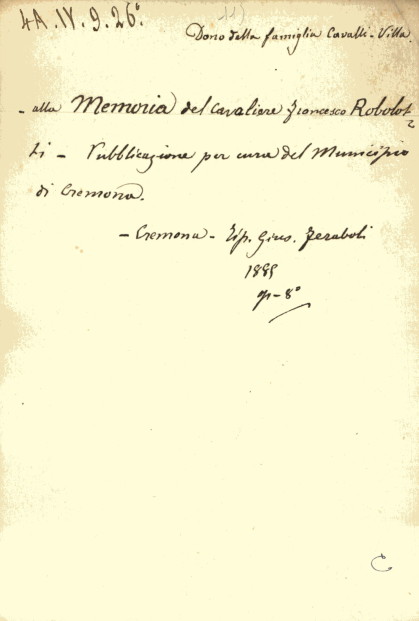 4A.IV.9.26°.
Dono della famiglia Cavalli-Villa.
- alla Memoria del cavaliere Francesco Robolot=
ti - Pubblicazione per cura del Municipio
di Cremona.
- Cremona - Tip. Gius. Feraboli
1885
8°